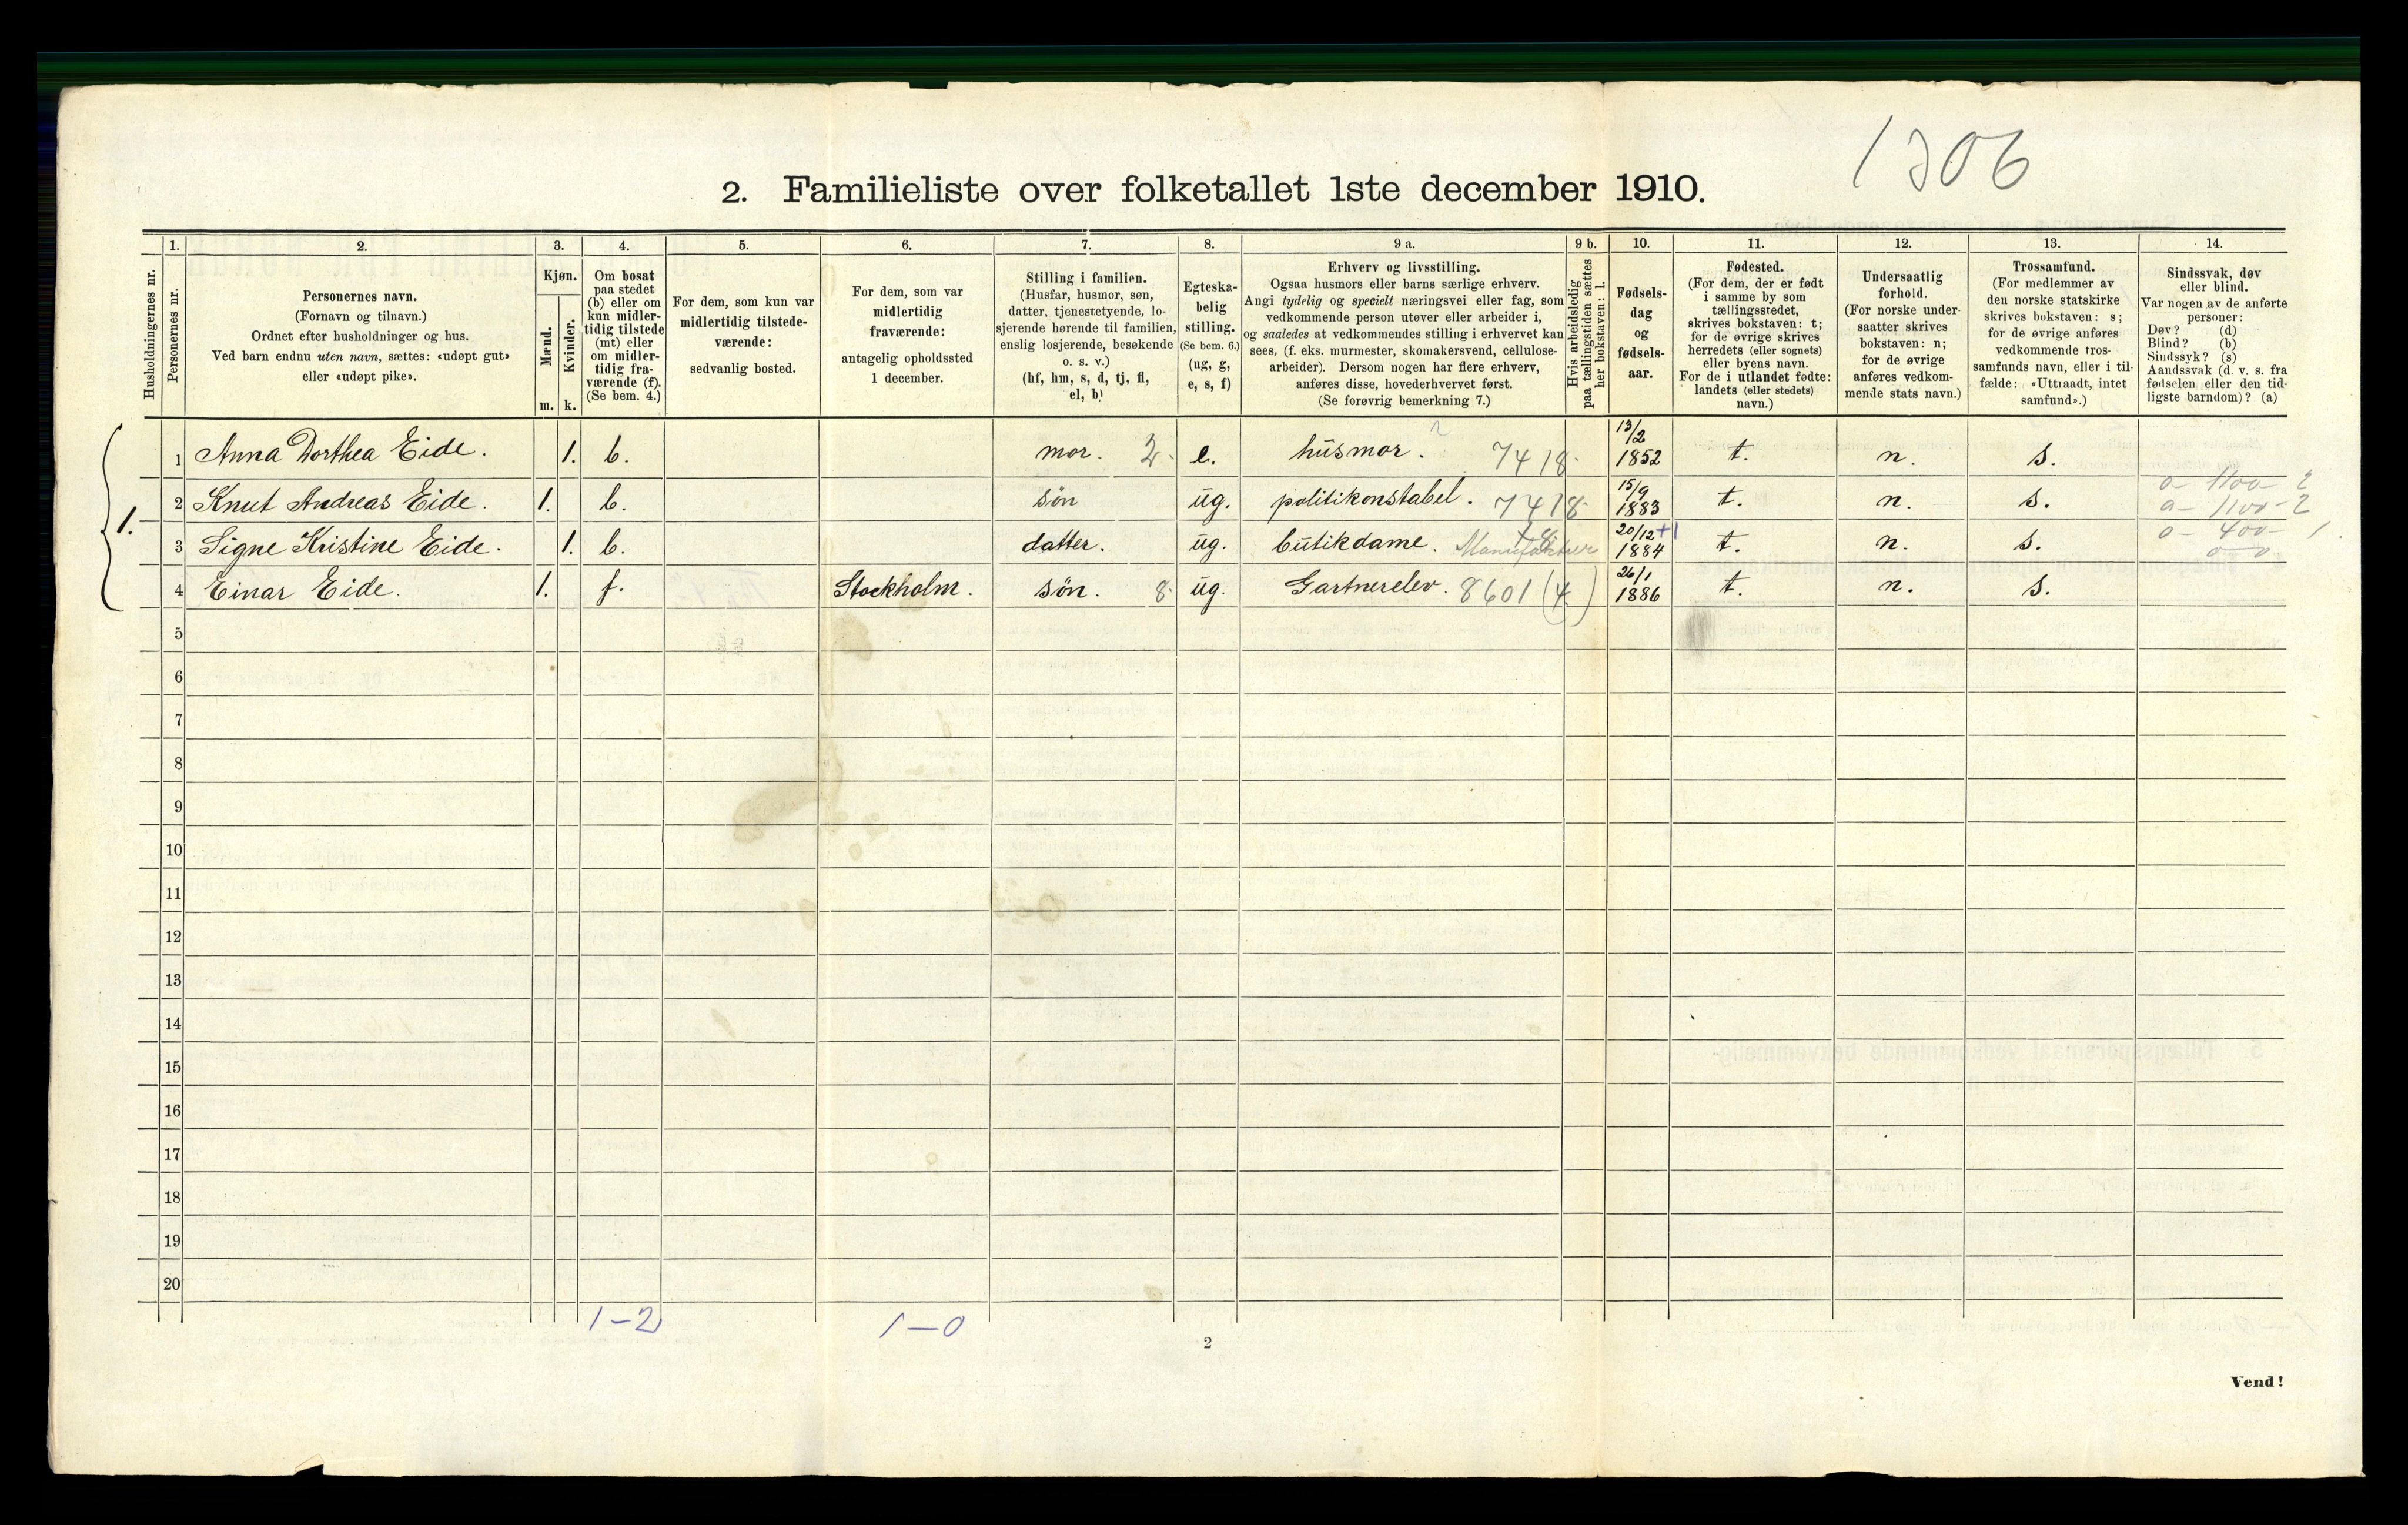 1306
2. Familieliste over folketallet 1ste december 1910.
Husholdningernes nr.
1.
Personernes nr.
2.
Personernes navn.
(Fornavn og tilnavn.)
Ordnet efter husholdninger og hus.
Ved barn endnu uten navn, sættes: «udøpt gut»
eller «udøpt pike».
3.
Kjøn.
Mænd.
Kvinder.
m. k.
4.
Om bosat
paa stedet
(b) eller om
kun midler-
tidig tilstede
(mt) eller
om midler-
tidig fra-
værende (f).
(Se bem. 4.)
5.
For dem, som kun var
midlertidig tilstede-
værende:
sedvanlig bosted.
6.
For dem, som var
midlertidig
fraværende:
antagelig opholdssted
1 december.
7.
Stilling i familien.
(Husfar, husmor, søn,
datter, tjenestetyende, lo-
sjerende hørende til familien,
enslig losjerende, besøkende
o. s. v.)
(hf, hm, s, d, tj, fl,
el, b)
8.
Egteska-
belig
stilling.
(Se bem. 6.)
(ug, g,
e, s, f)
9 a.
Erhverv og livsstilling.
Ogsaa husmors eller barns særlige erhverv.
Angi tydelig og specielt næringsvei eller fag, som
vedkommende person utøver eller arbeider i,
og saaledes at vedkommendes stilling i erhvervet kan
sees, (f. eks. murmester, skomakersvend, cellulose-
arbeider). Dersom nogen har flere erhverv,
anføres disse, hovederhvervet først.
(Se forøvrig bemerkning 7.)
9 b.
Hvis arbeidsledig
paa tællingstiden sættes
her bokstaven: l.
10.
Fødsels-
dag
og
fødsels-
aar.
11.
Fødested.
(For dem, der er født
i samme by som
tællingsstedet,
skrives bokstaven: t;
for de øvrige skrives
herredets (eller sognets)
eller byens navn.
For de i utlandet fødte:
landets (eller stedets)
navn.)
12.
Undersaatlig
forhold.
(For norske under-
saatter skrives
bokstaven: n;
for de øvrige
anføres vedkom-
mende stats navn.)
13.
Trossamfund.
(For medlemmer av
den norske statskirke
skrives bokstaven: s;
for de øvrige anføres
vedkommende tros-
samfunds navn, eller i til-
fælde: «Uttraadt, intet
samfund».)
14.
Sindssvak, døv
eller blind.
Var nogen av de anførte
personer:
Døv? (d)
Blind? (b)
Sindssyk? (s)
Aandssvak (d. v. s. fra
fødselen eller den tid-
ligste barndom)? (a)
1.
1 Anna Dorthea Eide. 1. b. mor. 2. e. husmor. 7418. 13/2 1852 t. n. s.
2 Knut Andreas Eide. 1. b. søn ug. politikonstabel. 7418 15/9 1883 t. n. s. a- 1100-2
3 Signe Kristine Eide. 1. b. datter. ug. butikdame. Manufaktur 20/12 1884 t. n. s. 0- 400- 1
4 Einar Eide. 1. f. Stockholm. søn. 8. ug. Gartnerelev. 8601 (4.) 26/1 1886 t. n. s.
5
6
7
8
9
10
11
12
13
14
15
16
17
18
19
20
1-2
1-0
2
Vend!